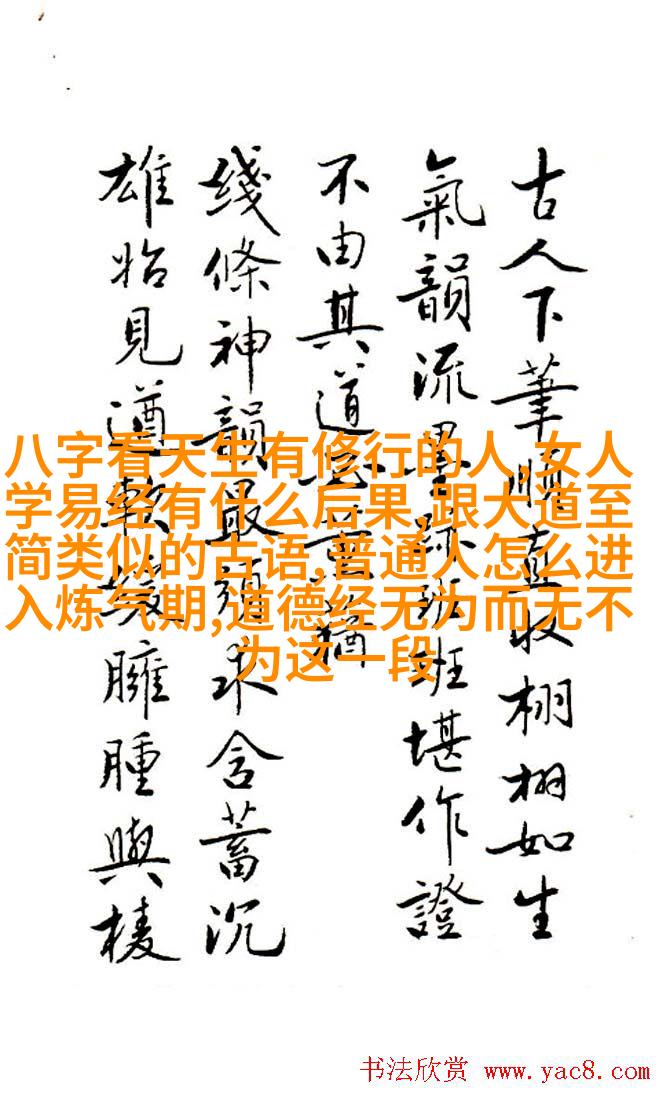 古人下筆直收栩栩如生
氣韻流墨跡班班堪作證
不由其道
綫條神韻最須求含蓄沉
雄始見遒軟緩臃腫與棱
八字看天生有修行的人,女人
学易经有什么后果,跟大道至
简类似的古语,普通人怎么进
入炼气期,道德经无为而无不
为这一段
书法欣赏 www.yac8.com